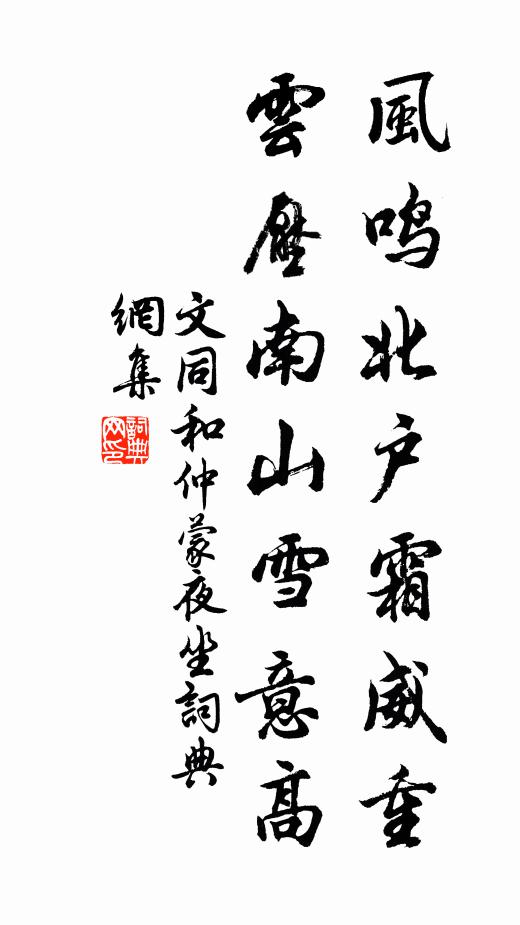 風鸣北户霜威重
雲壓南山雪意高
文同和仲蒙夜坐詞典
網集
詞典
网印